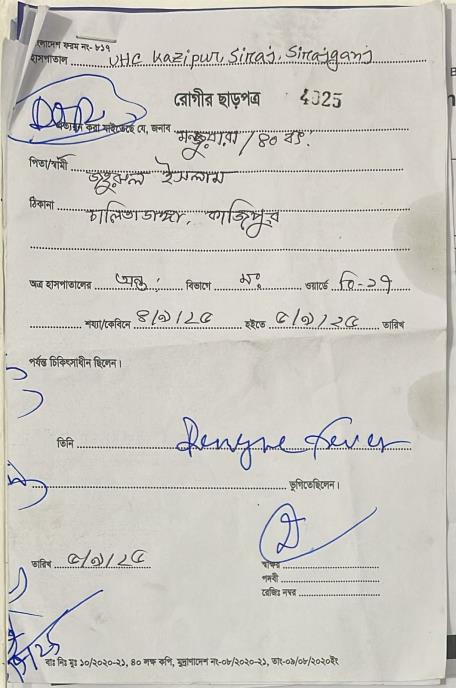 বাংলাদেশ ফরম নং- ৮১৭
হাসপাতাল UHC Kazipur, Siraj, Sirajganj
রোগীর ছাড়পত্র 4025
প্রত্যয়ন করা যাইতেছে যে, জনাব /৪০ বৎ.
পিতা/স্বামী জহুরুল ইসলাম
ঠিকানা চালিতাডাঙ্গা, কাজিপুর
অত্র হাসপাতালের অন্ত: বিভাগে ম: ওয়ার্ডে বি-২৭
শয্যা/কেবিনে ৪/৯/২৫ হইতে ৫/৯/২৫ তারিখ
পর্যন্ত চিকিৎসাধীন ছিলেন।
তিনি Dengue Fever
ভুগিতেছিলেন।
স্বাক্ষর
তারিখ ৫/৯/২৫
পদবী
রেজিঃ নম্বর
বাঃ নিঃ মুঃ ১০/২০২০-২১, ৪০ লক্ষ কপি, মুদ্রাণাদেশ নং-০৮/২০২০-২১, তাং-০৯/০৮/২০২০ইং